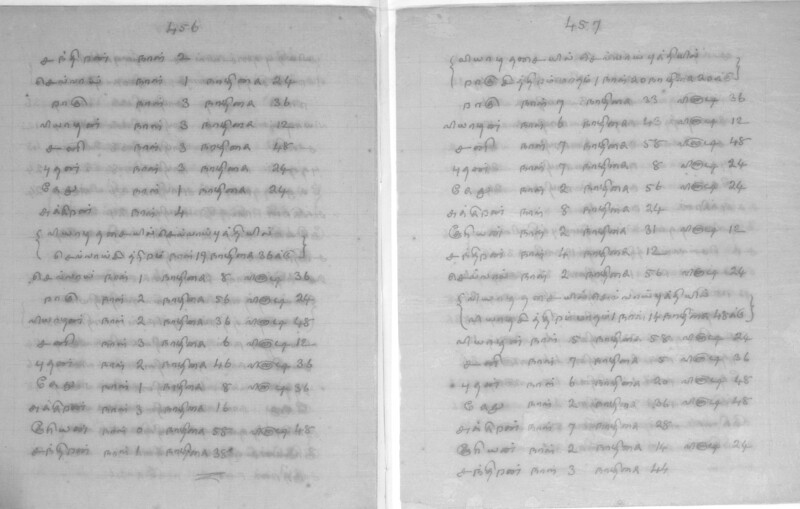 456
சந்திரன் நாள் 2
செவ்வாய் நாள் 1 நாழிகை 24
ராகு நாள் 3 நாழிகை 36
வியாழன் நாள் 3 நாழிகை 12
சனி நாள் 3 நாழிகை 48
புதன் நாள் 3 நாழிகை 24
கேது நாள் 1 நாழிகை 24
சுக்கிரன் நாள் 4
செவ்வாய் நாள் 1 நாழிகை 8 விநாடி 36
ராகு நாள் 2 நாழிகை 56 விநாடி 24
வியாழன் நாள் 2 நாழிகை 36 விநாடி 48
சனி நாள் 3 நாழிகை 6 விநாடி 12
புதன் நாள் 2 நாழிகை 46 விநாடி 36
கேது நாள் 1 நாழிகை 8 விநாடி 36
சுக்கிரன் நாள் 3 நாழிகை 16
நாள் 0 நாழிகை 58 விநாடி 48
சந்திரன் நாள் 1 நாழிகை 38
457
ராகு நாள் 7 நாழிகை 33 விநாடி 36
வியாழன் நாள் 6 நாழிகை 43 விநாடி 12
சனி நாள் 7 நாழிகை 58 விநாடி 48
புதன் நாள் 7 நாழிகை 8 விநாடி 24
கேது நாள் 2 நாழிகை 56 விநாடி 24
சுக்கிரன் நாள் 8 நாழிகை 24
நாள் 2 நாழிகை 31 விநாடி 12
சந்திரன் நாள் 4 நாழிகை 12
செவ்வாய் நாள் 2 நாழிகை 56 விநாடி 24
வியாழன் நாள் 5 நாழிகை 58 விநாடி 24
சனி நாள் 7 நாழிகை 5 விநாடி 36
புதன் நாள் 6 நாழிகை 20 விநாடி 48
கேது நாள் 2 நாழிகை 36 விநாடி 48
சுக்கிரன் நாள் 7 நாழிகை 28
நாள் 2 நாழிகை 14 விநாடி 24
சந்திரன் நாள் 3 நாழிகை 44